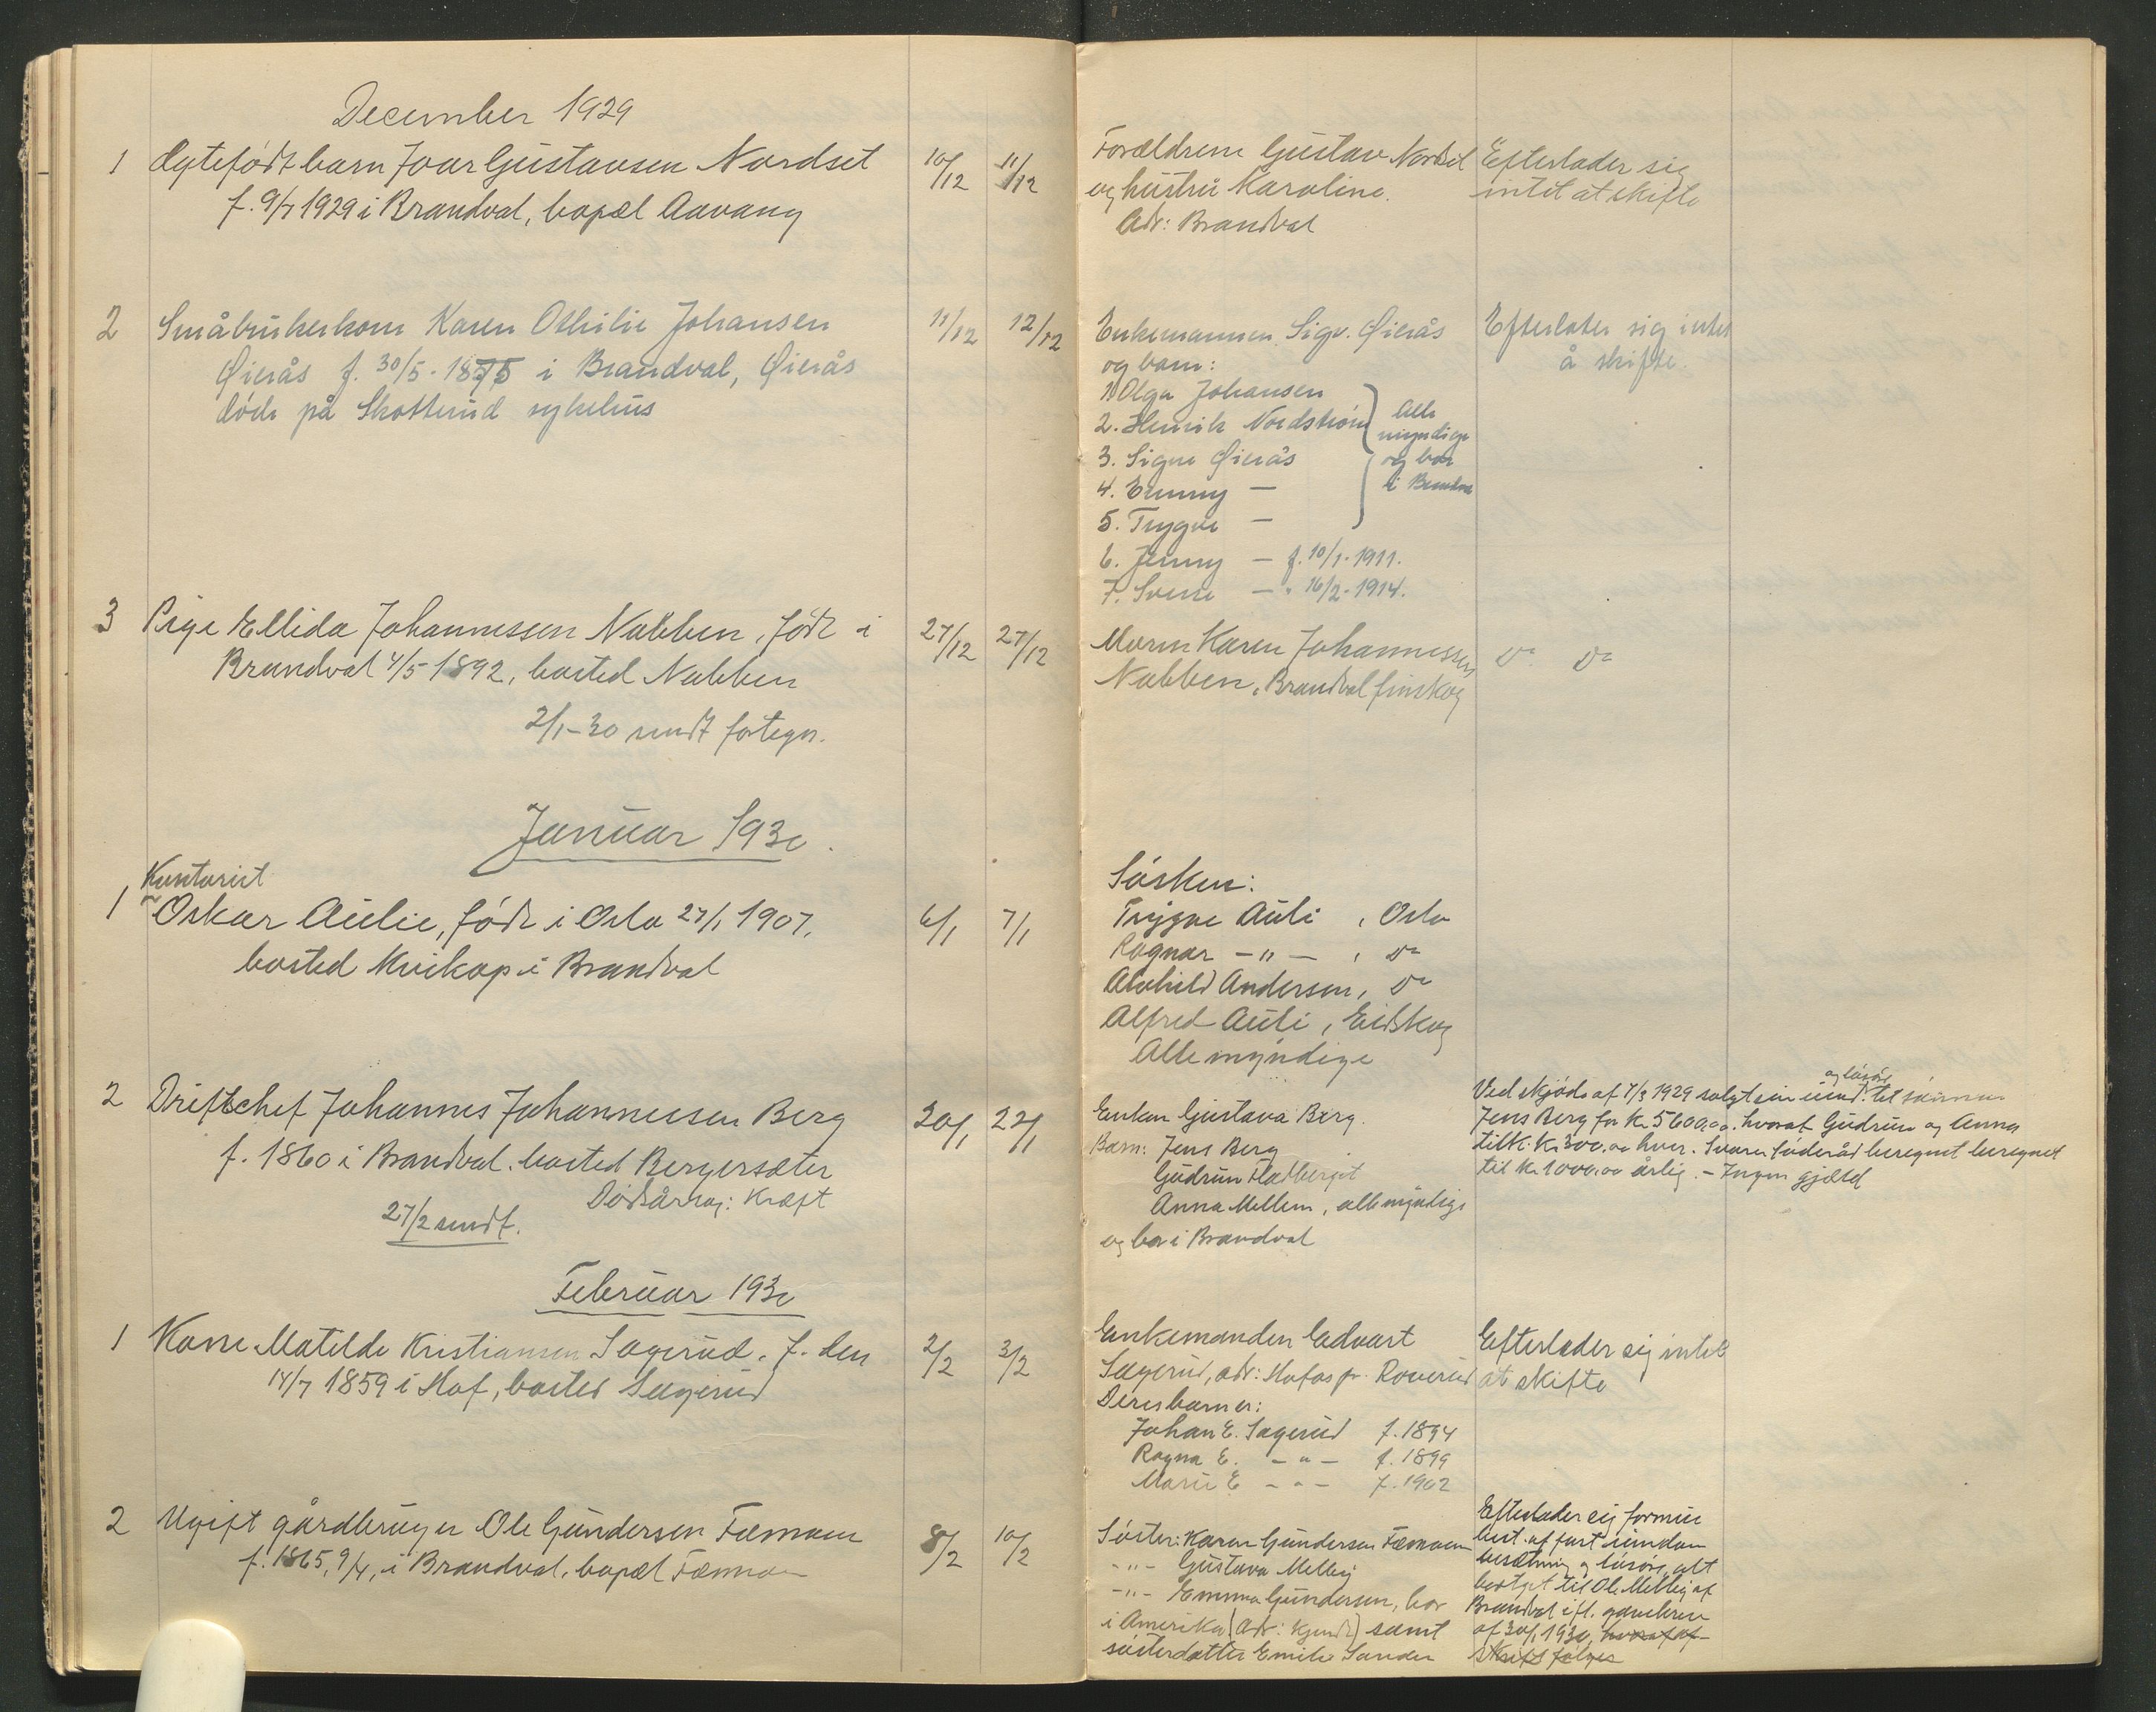 December 1929
1 Ægtefødt barn Joar Gustavsen Nordset 10/12 11/12 Forældrene Gustav Nordset Efterlader sig
f. 9/7 1929 i Brandval, bopæl Aavang og hustru Karoline. intet at skifte
Adr: Brandval
2 Småbrukerkone Karen Othilie Johansen 11/12 12/12 Enkemannen Sigv. Øierås Efterlater sig intet
Øierås f. 30/5-1875 i Brandval, Øierås og barn: å skifte.
døde på Skotterud sykehus 1) Olga Johansen
2. Henrik Nordstrøm Alle myndige
3. Signe Øierås og bor
4. Emmy — i Brandval
5. Trygve —
6. Jenny — f. 10/1-1911.
7. Sverre — " 16/2-1914.
3 Pige Ellida Johannessen Nabben, født i 27/12 27/12 Moren Karen Johannessen Do Do
Brandval 4/5 1892, bosted Nabben Nabben, Brandval finskog
2/1-30 sendt fortegn.
Januar 1930.
Kontorist Søsken:
1 Oskar Aulie, født i Oslo 27/1 1907, 6/1 7/1 Trygve Auli , Oslo
bosted Kvikop i Brandval Ragnar — " — , Do
Alvhild Andersen, Do
Alfred Auli, Eidskog
Alle myndige
og løsøre
2 Driftschef Johannes Johannessen Berg 20/1 22/1 Enken Gustava Berg. Ved skjøde af 7/3 1929 solgt sin eiend. til sønnen
f. 1860 i Brandval. bosted Bergersæter Barn: Jens Berg Jens Berg for kr. 5600,00. hvoraf Gudrun og Anna
Dødsårsag: Kræft Gudrun Fladberget tilk. kr. 300.00 hver. Svarer føderåd beregnet beregnet
27/2 sendt. Anna Mellem, alle myndige til kr. 1000,00 årlig. - Ingen gjæld
og bor i Brandval
Februar 1930
1 Kone Matilde Kristiansen Sagerud. f. den 2/2 3/2 Enkemanden Edvart Efterlader sig intet
14/7 1859 i Hof, bosted Sagerud Sagerud, adr: Hofos pr. Roverud at skifte
Deres barn er:
Johan E. Sagerud f. 1894
Ragna E. — " — f. 1899
Marie E — " — f. 1902
2 Ugift gårdbruger Ole Gundersen Fæmoen 8/2 10/2 Søster: Karen Gundersen Fæmoen Efterlader sig formue
f. 1865, 9/4, i Brandval. bopæl Fæmoen - " - Gustava Melby best. af fast eiendom
- " - Emma Gundersen, bor besætning og løsøre, alt
i Amerika (Adr: kjendt) samt bortgit til Ole Melby af
søsterdatter Emilie Sander Brandval ifl. gavebrev
af 30/1 1930, hvoraf af-
skrift følges